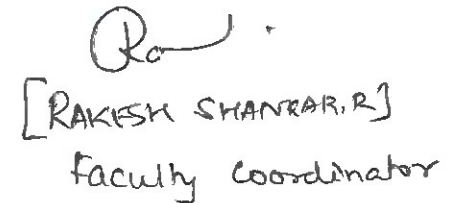 [RAKESH SHANKAR.R]
Faculty Coordinator